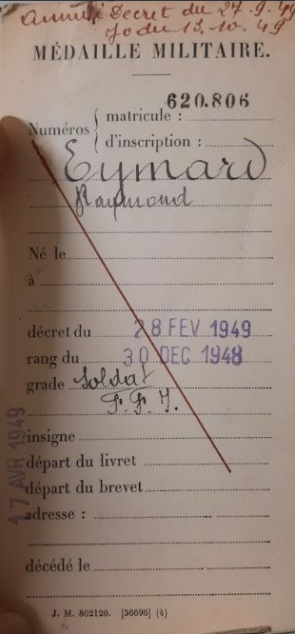 Annulé Decret du 27-9-49
Jo du 13.10.49
MÉDAILLE MILITAIRE.
Numéros { matricule : 620.806
d'inscription :
Eymard
Raymond
Né le
à
décret du 28 FEV 1949
rang du 30 DEC 1948
grade Soldat
F.F.I.
insigne
départ du livret
départ du brevet
17 AVR 1949
adresse :
décédé le
J. M. 802120. [36696] (4)